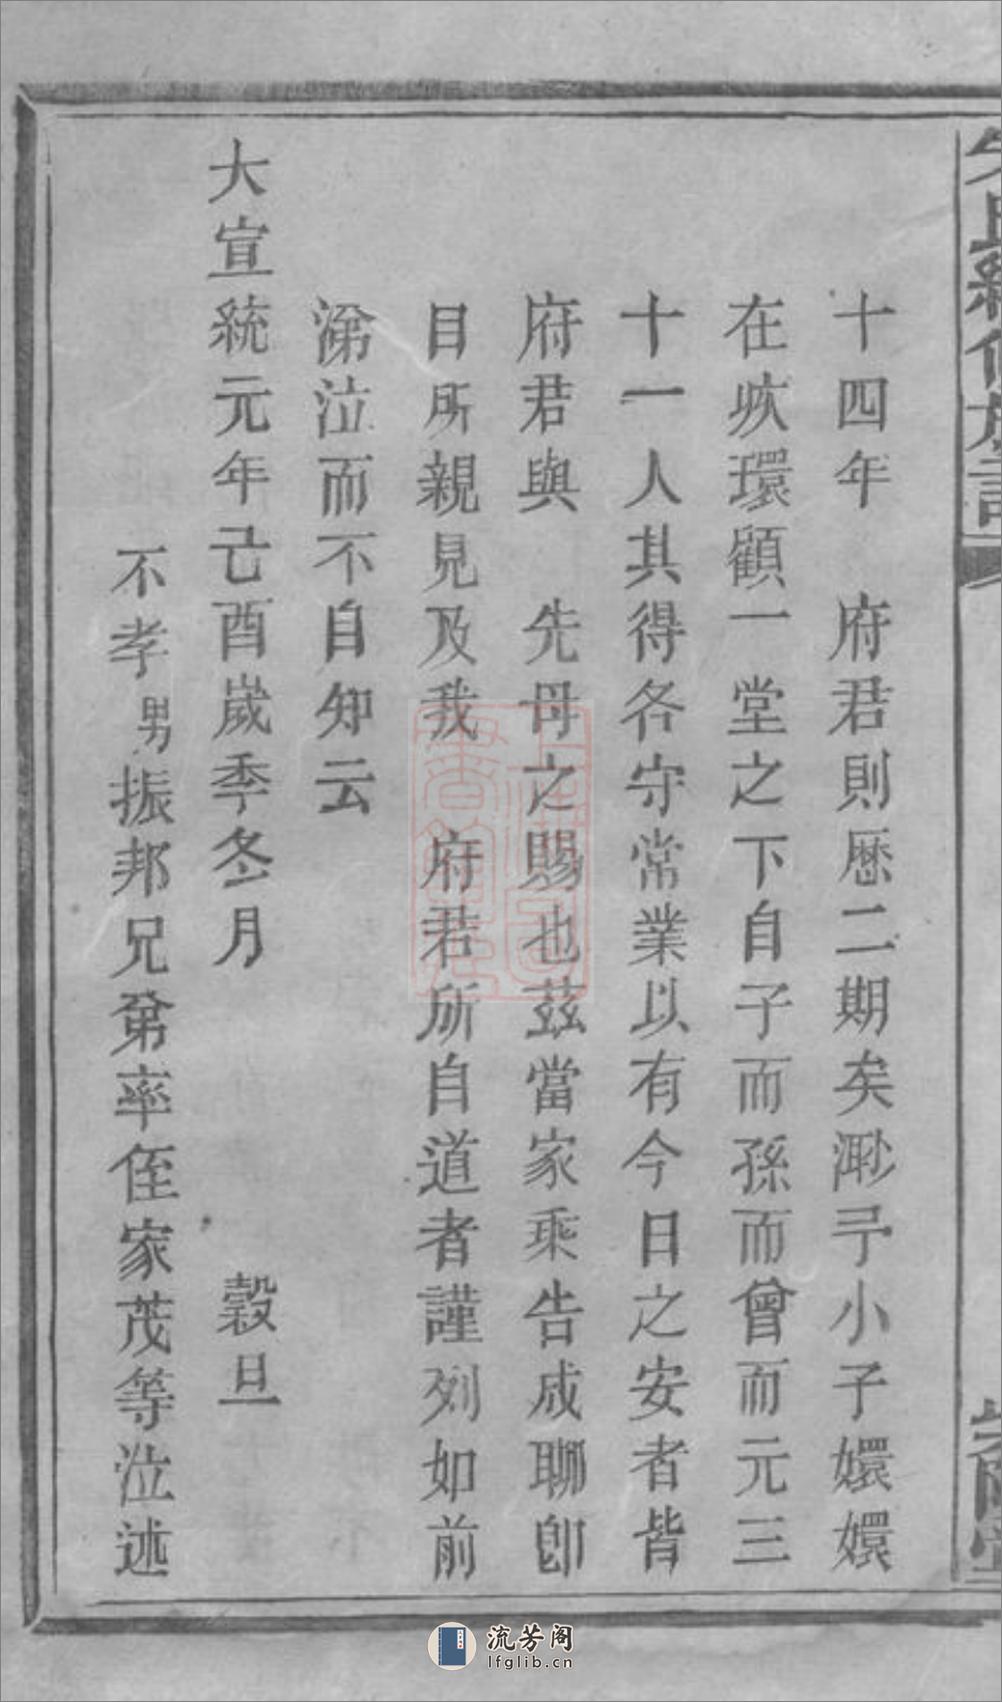 十四年　府君則厯二期矣渺予小子嬛嬛
在疚環顧一堂之下自子而孫而曾而元三
十一人其得各守常業以有今日之安者皆
府君與　先母之賜也茲當家乘告成聊卽
目所親見及我　府君所自道者謹列如前
涕泣而不自知云
大宣統元年己酉嵗季冬月　穀旦
不孝男振邦兄弟率侄家茂等泣述
流芳阁
lfglib.cn